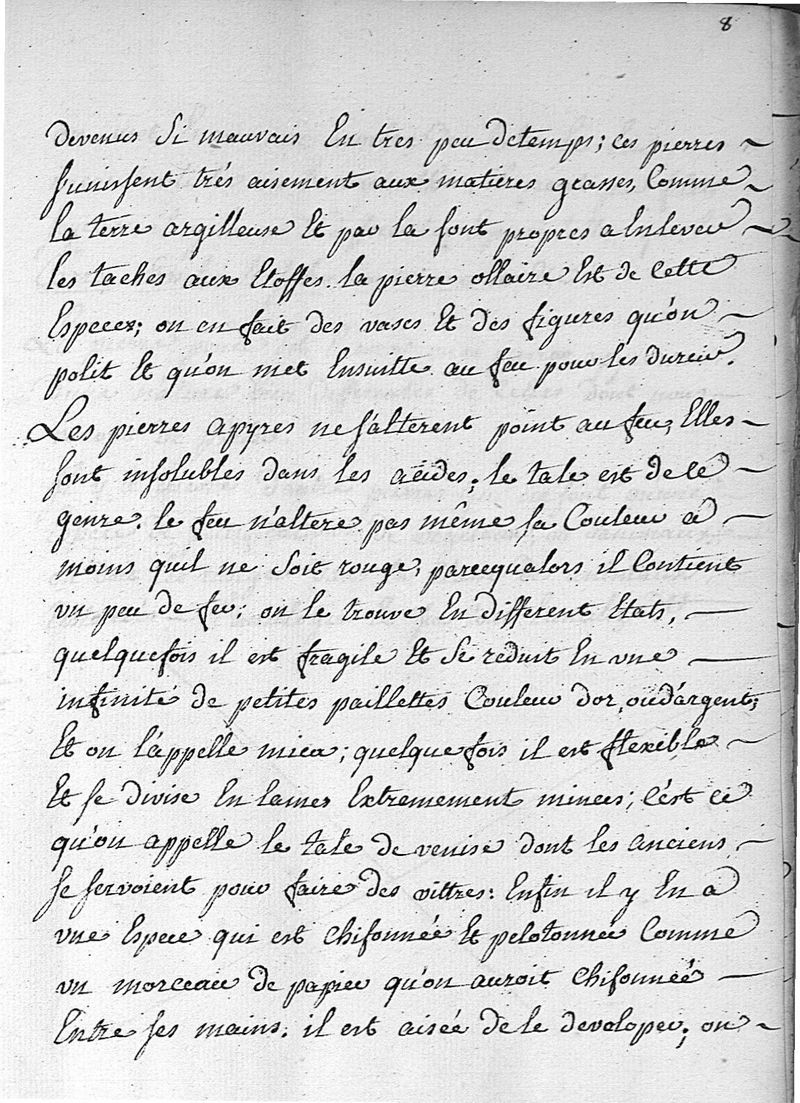 8
devenus Si mauvais En tres peu detemps; ces pierres
s'unissent trés aisement aux matieres grasses, Comme
la terre argilleuse Et par la sont propres a Enlever
les taches aux Etoffes. la pierre ollaire Est de Cette
Especes; on en fait des vases Et des figures qu'on
polit Et qu'on met Ensuitte au feu pour les durcir.
Les pierres apyres ne s'alterent point au feu, Elles
sont insolubles dans les acides; le talc est de ce
genre. le feu n'altere pas même sa Couleur à
moins quil ne Soit rouge, parcequalors il Contient
un peu de fer; on le trouve En different Etats,
quelquefois il est fragile Et Se reduit En une
infinité de petites paillettes Couleur d'or, oud'argent;
Et on l'appelle mica; quelque fois il est flexible
Et se divise En lames Extremement minces; c'est ce
qu'on appelle le talc de venise dont les anciens
se servoient pour faire des vittres: Enfin il y En a
une Espece qui est chifonnée Et pelotonnée Comme
un morceau de papier qu'on auroit chifonnéé
Entre ses mains. il est aisée de le developer; on